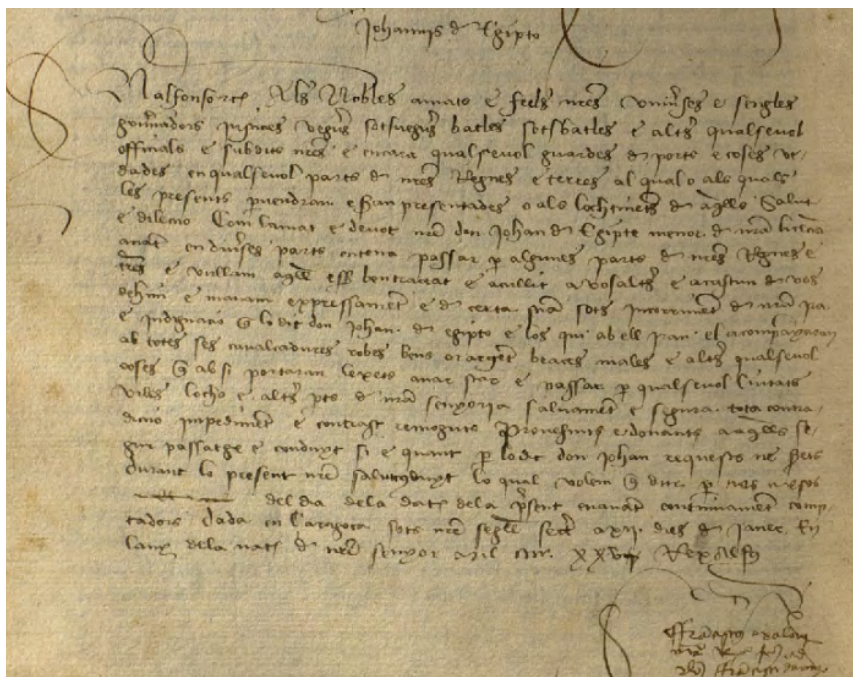 Johannis de Egipto
N alfonso etc. Als Nobles amats e feels nres universes e sengles
governadors justicies veguers sotsveguers batles sotsbatles e altres qualsevol
officials e subdits nres e encara qualsevol guardes de ports e coses ve-
dades en qualsevol parts de nres Regnes e terres al qual o als quals
les presents pervendran e seran presentades o als lochtinents de aquells Salut
e dileccio Com lamat e devot nre don Johan de Egipte menor de nra licencia
anant en diverses parts entena passar per algunes parts de nres Regnes e
terres e vullam aquell esser ben tractat e acullit a vosaltres e a cascun de vos
dehim e manam expressament e de certa sciencia sots incorriment de nra ira
e indignacio que lo dit don Johan de egipto e los qui ab ell iran e l acompanyaran
ab totes ses cavalcadures robes bens or argent males e altres qualsevol
coses que ab si portaran lexets anar star e passar per qualsevol Ciutats
viles lochs e altres parts de nra senyoria salvament e segura tota contra-
diccio impediment e contrast remoguts Provehints e donants a aquells se-
gur passatge e conduyt si e quant per lo dit don Johan requests ne sereu
durant lo present nre salconduyt lo qual volem que dure per tres mesos
del dia dela data dela present enavant continuament comp-
tadors Dada en Caragoça sots nre segell secret a xii dies de Janer En
lany dela nat de nre senyor Mil CCCC XXV Rex Alfonsus
Franciscus